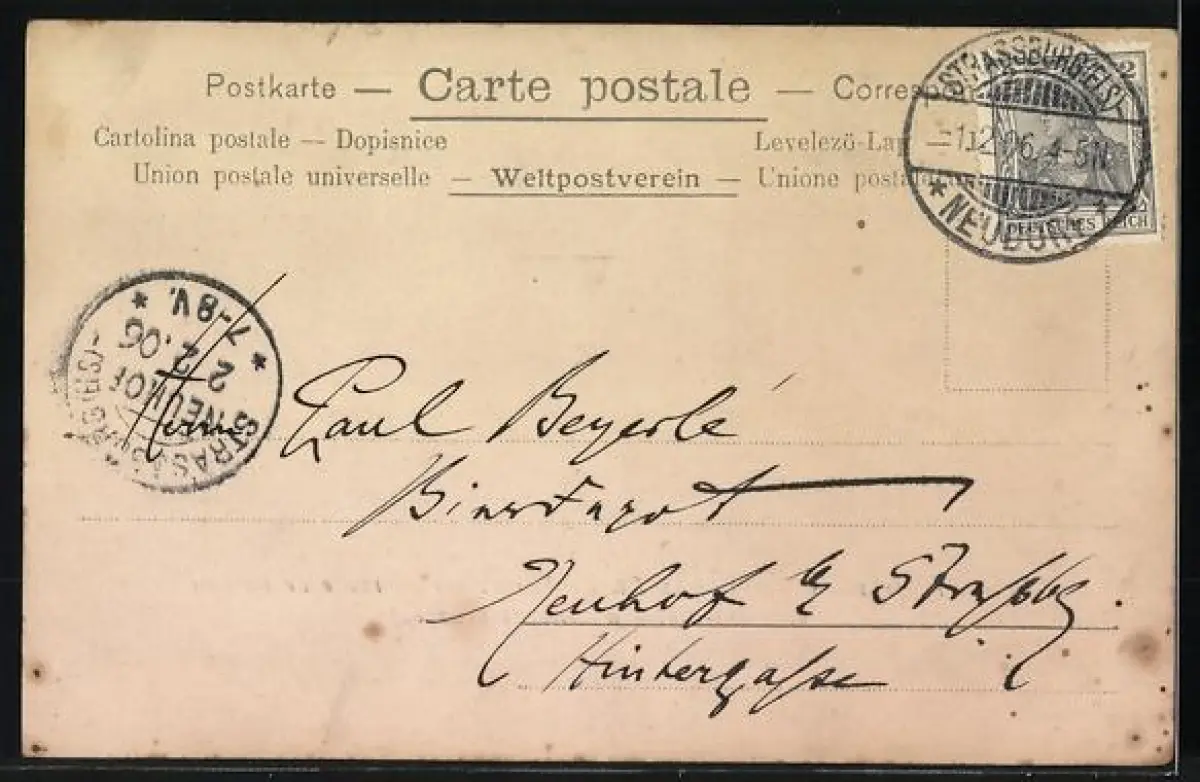 Postkarte — Carte postale —
Cartolina postale — Dopisnice
Levelezö-La
Union postale universelle — Weltpostverein — Unione posta
STRASSBURG (ELS)
12 06. 4-5N
* NEUDORF *
2
DEUTSCHES REICH
STRASSBURG (ELS)-
NEUHOF
2 2.06
* 7-8V. *
Herrn Paul Beyerlé
Bierdepot
Neuhof b/ Straßbg.
Hintergasse